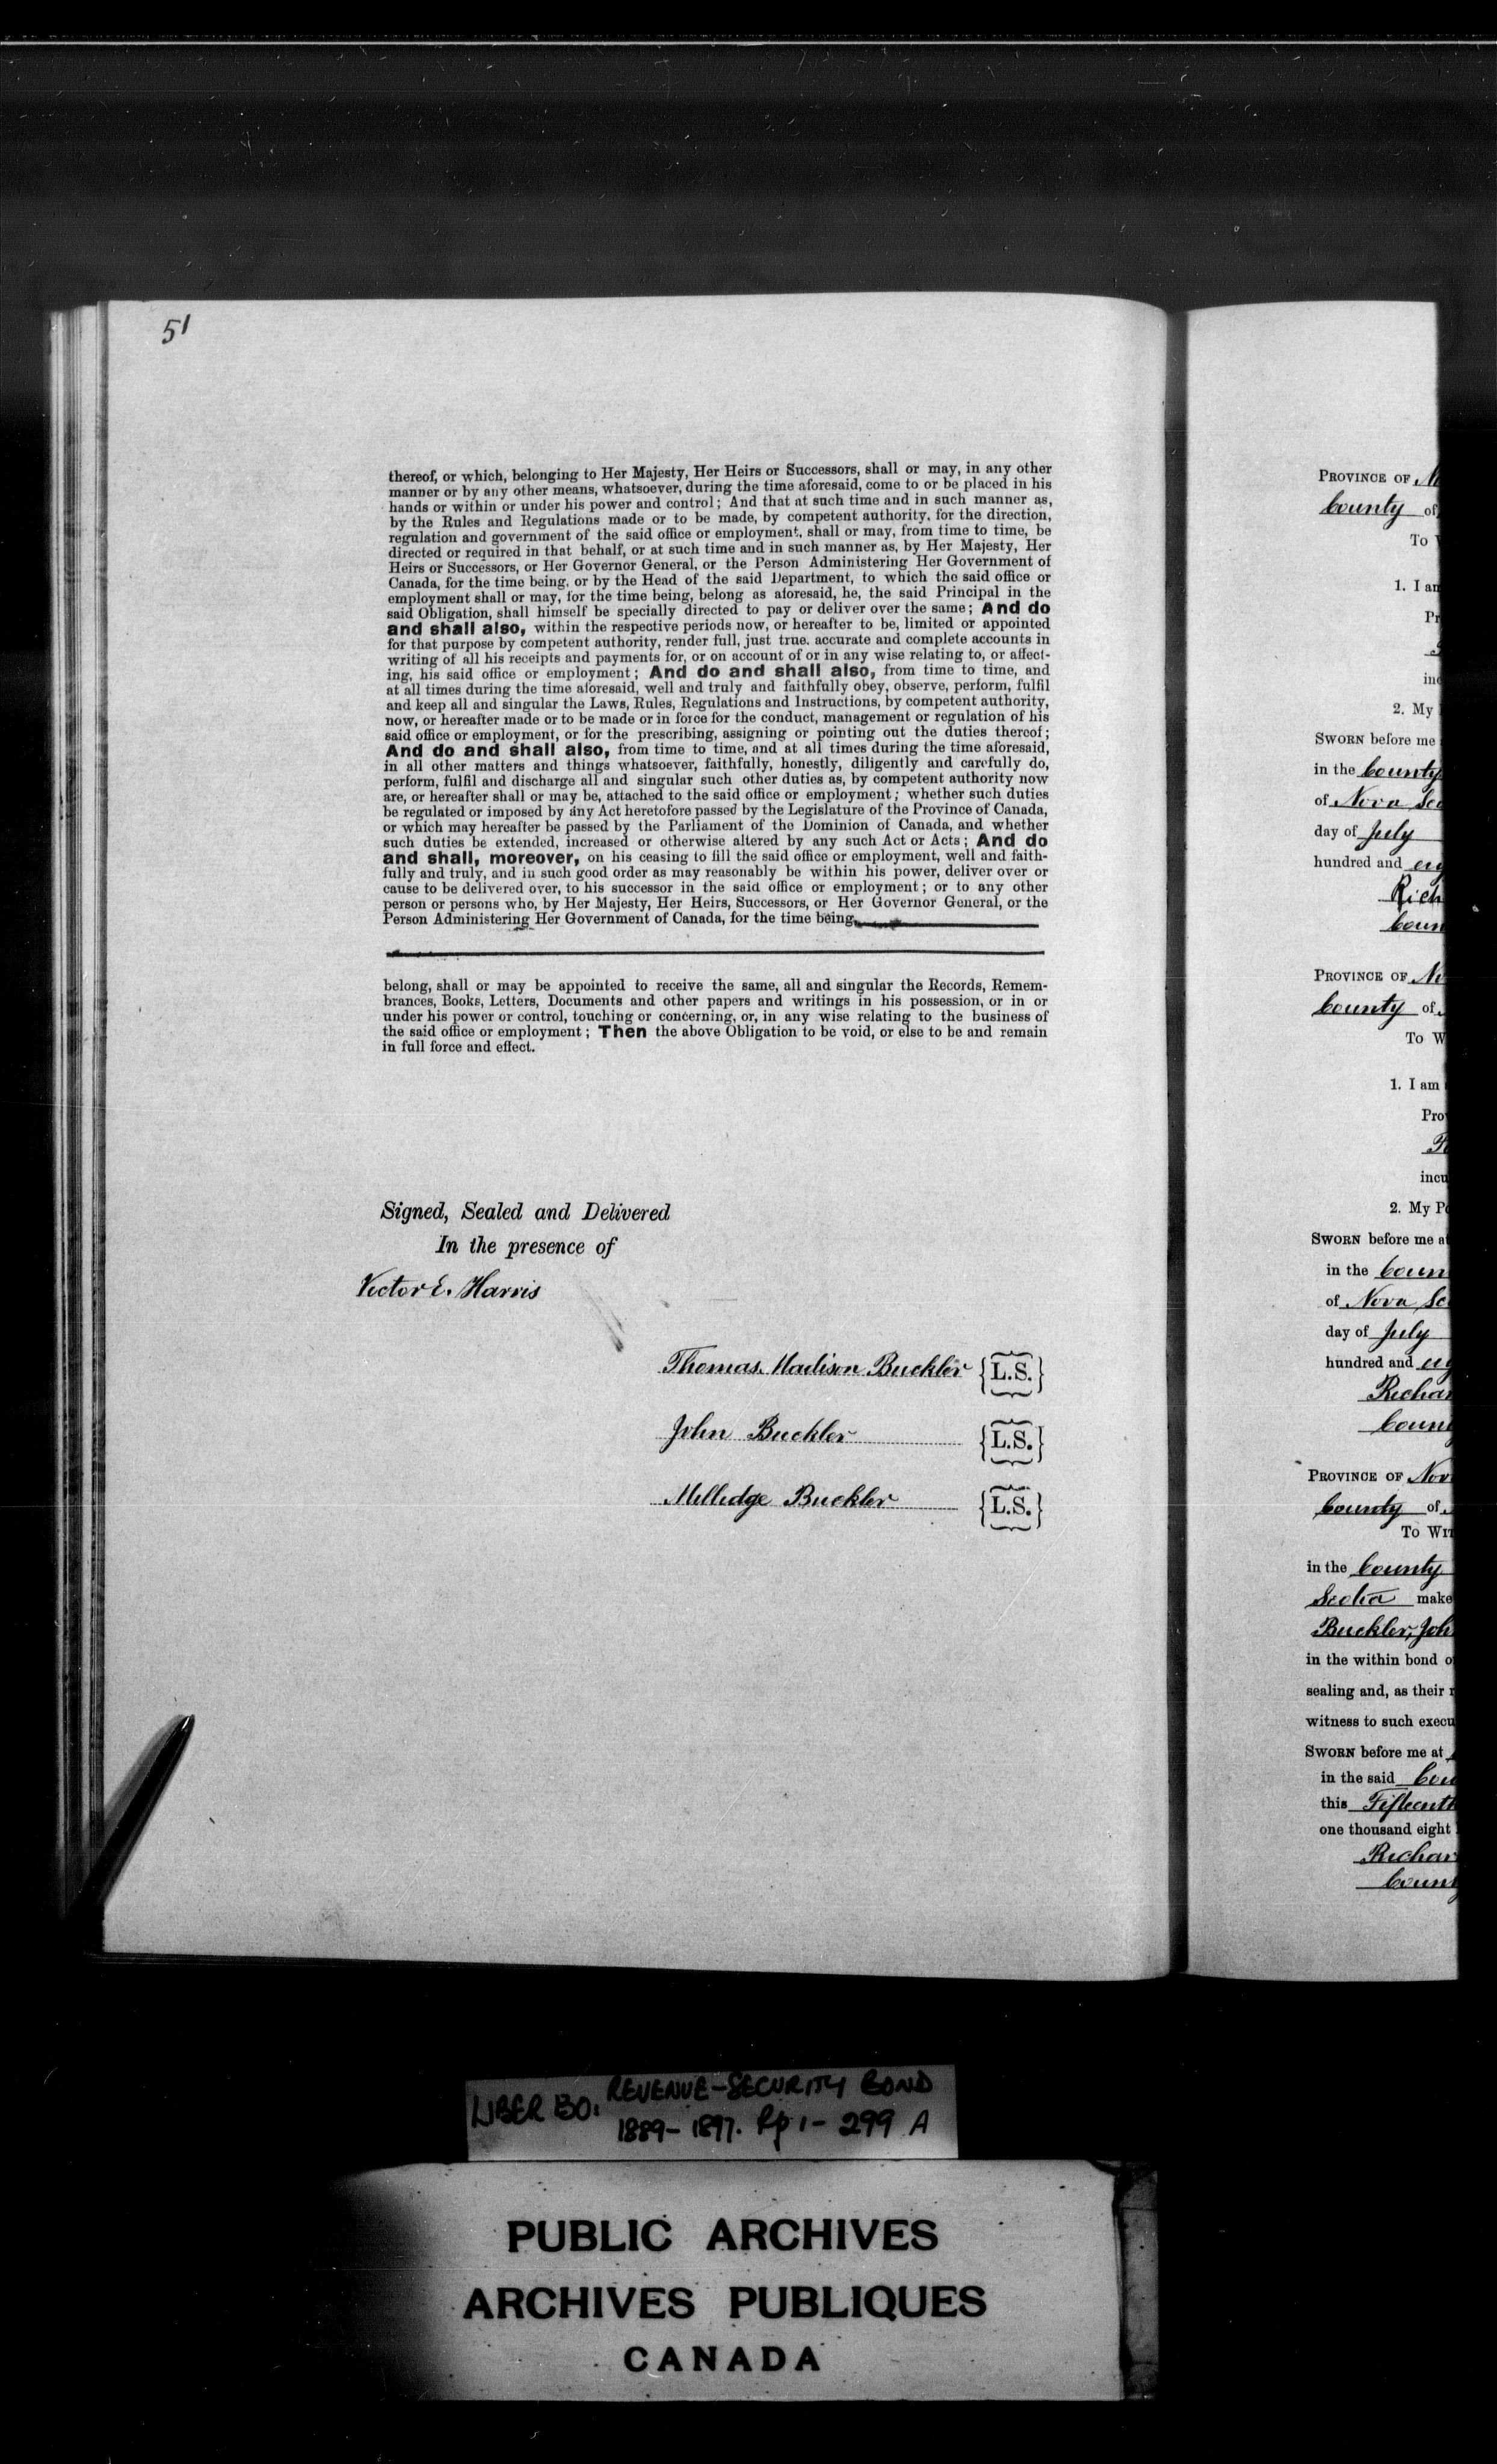 51
thereof, or which, belonging to Her Majesty, Her Heirs or Successors, shall or may, in any other
manner or by any other means, whatsoever, during the time aforesaid, come to or be placed in his
hands or within or under his power and control; And that at such time and in such manner as,
by the Rules and Regulations made or to be made, by competent authority, for the direction,
regulation and government of the said office or employment, shall or may, from time to time, be
directed or required in that behalf, or at such time and in such manner as, by Her Majesty, Her
Heirs or Successors, or Her Governor General, or the Person Administering Her Government of
Canada, for the time being, or by the Head of the said Department, to which the said office or
employment shall or may, for the time being, belong as aforesaid, he, the said Principal in the
said Obligation, shall himself be specially directed to pay or deliver over the same; And do
and shall also, within the respective periods now, or hereafter to be, limited or appointed
for that purpose by competent authority, render full, just true, accurate and complete accounts in
writing of all his receipts and payments for, or on account of or in any wise relating to, or affect-
ing, his said office or employment; And do and shall also, from time to time, and
at all times during the time aforesaid, well and truly and faithfully obey, observe, perform, fulfil
and keep all and singular the Laws, Rules, Regulations and Instructions, by competent authority,
now, or hereafter made or to be made or in force for the conduct, management or regulation of his
said office or employment, or for the prescribing, assigning or pointing out the duties thereof;
And do and shall also, from time to time, and at all times during the time aforesaid,
in all other matters and things whatsoever, faithfully, honestly, diligently and carefully do,
perform, fulfil and discharge all and singular such other duties as, by competent authority now
are, or hereafter shall or may be, attached to the said office or employment; whether such duties
be regulated or imposed by any Act heretofore passed by the Legislature of the Province of Canada,
or which may hereafter be passed by the Parliament of the Dominion of Canada, and whether
such duties be extended, increased or otherwise altered by any such Act or Acts; And do
and shall, moreover, on his ceasing to fill the said office or employment, well and faith-
fully and truly, and in such good order as may reasonably be within his power, deliver over or
cause to be delivered over, to his successor in the said office or employment; or to any other
person or persons who, by Her Majesty, Her Heirs, Successors, or Her Governor General, or the
Person Administering Her Government of Canada, for the time being,
belong, shall or may be appointed to receive the same, all and singular the Records, Remem-
brances, Books, Letters, Documents and other papers and writings in his possession, or in or
under his power or control, touching or concerning, or, in any wise relating to the business of
the said office or employment; Then the above Obligation to be void, or else to be and remain
in full force and effect.
Signed, Sealed and Delivered
In the presence of
Victor E. Harris
Thomas Madison Buckler {L.S.}
John Buckler {L.S.}
Milledge Buckler {L.S.}
PROVINCE OF
County of
To
1. I am
2. My
SWORN before me
in the County
of Nova
day of July
hundred and
PROVINCE OF
County of
To W
1. I am
2. My
SWORN before me
in the
of Nova
day of July
hundred and
PROVINCE OF
County of
To
in the County
Scotia make
Buckler,
in the within bond
sealing and, as their
witness to such
SWORN before me at
in the said
this
one thousand eight
LIBER 130: REVENUE-SECURITY BOND
1889-1897. Pp 1-299 A
PUBLIC ARCHIVES
ARCHIVES PUBLIQUES
CANADA